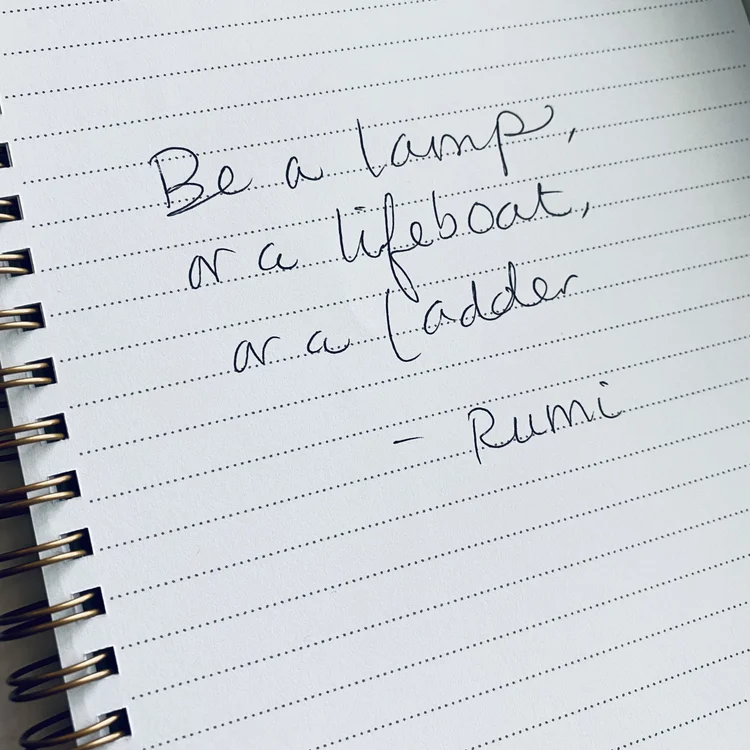 Be a lamp,
or a lifeboat,
or a ladder
- Rumi